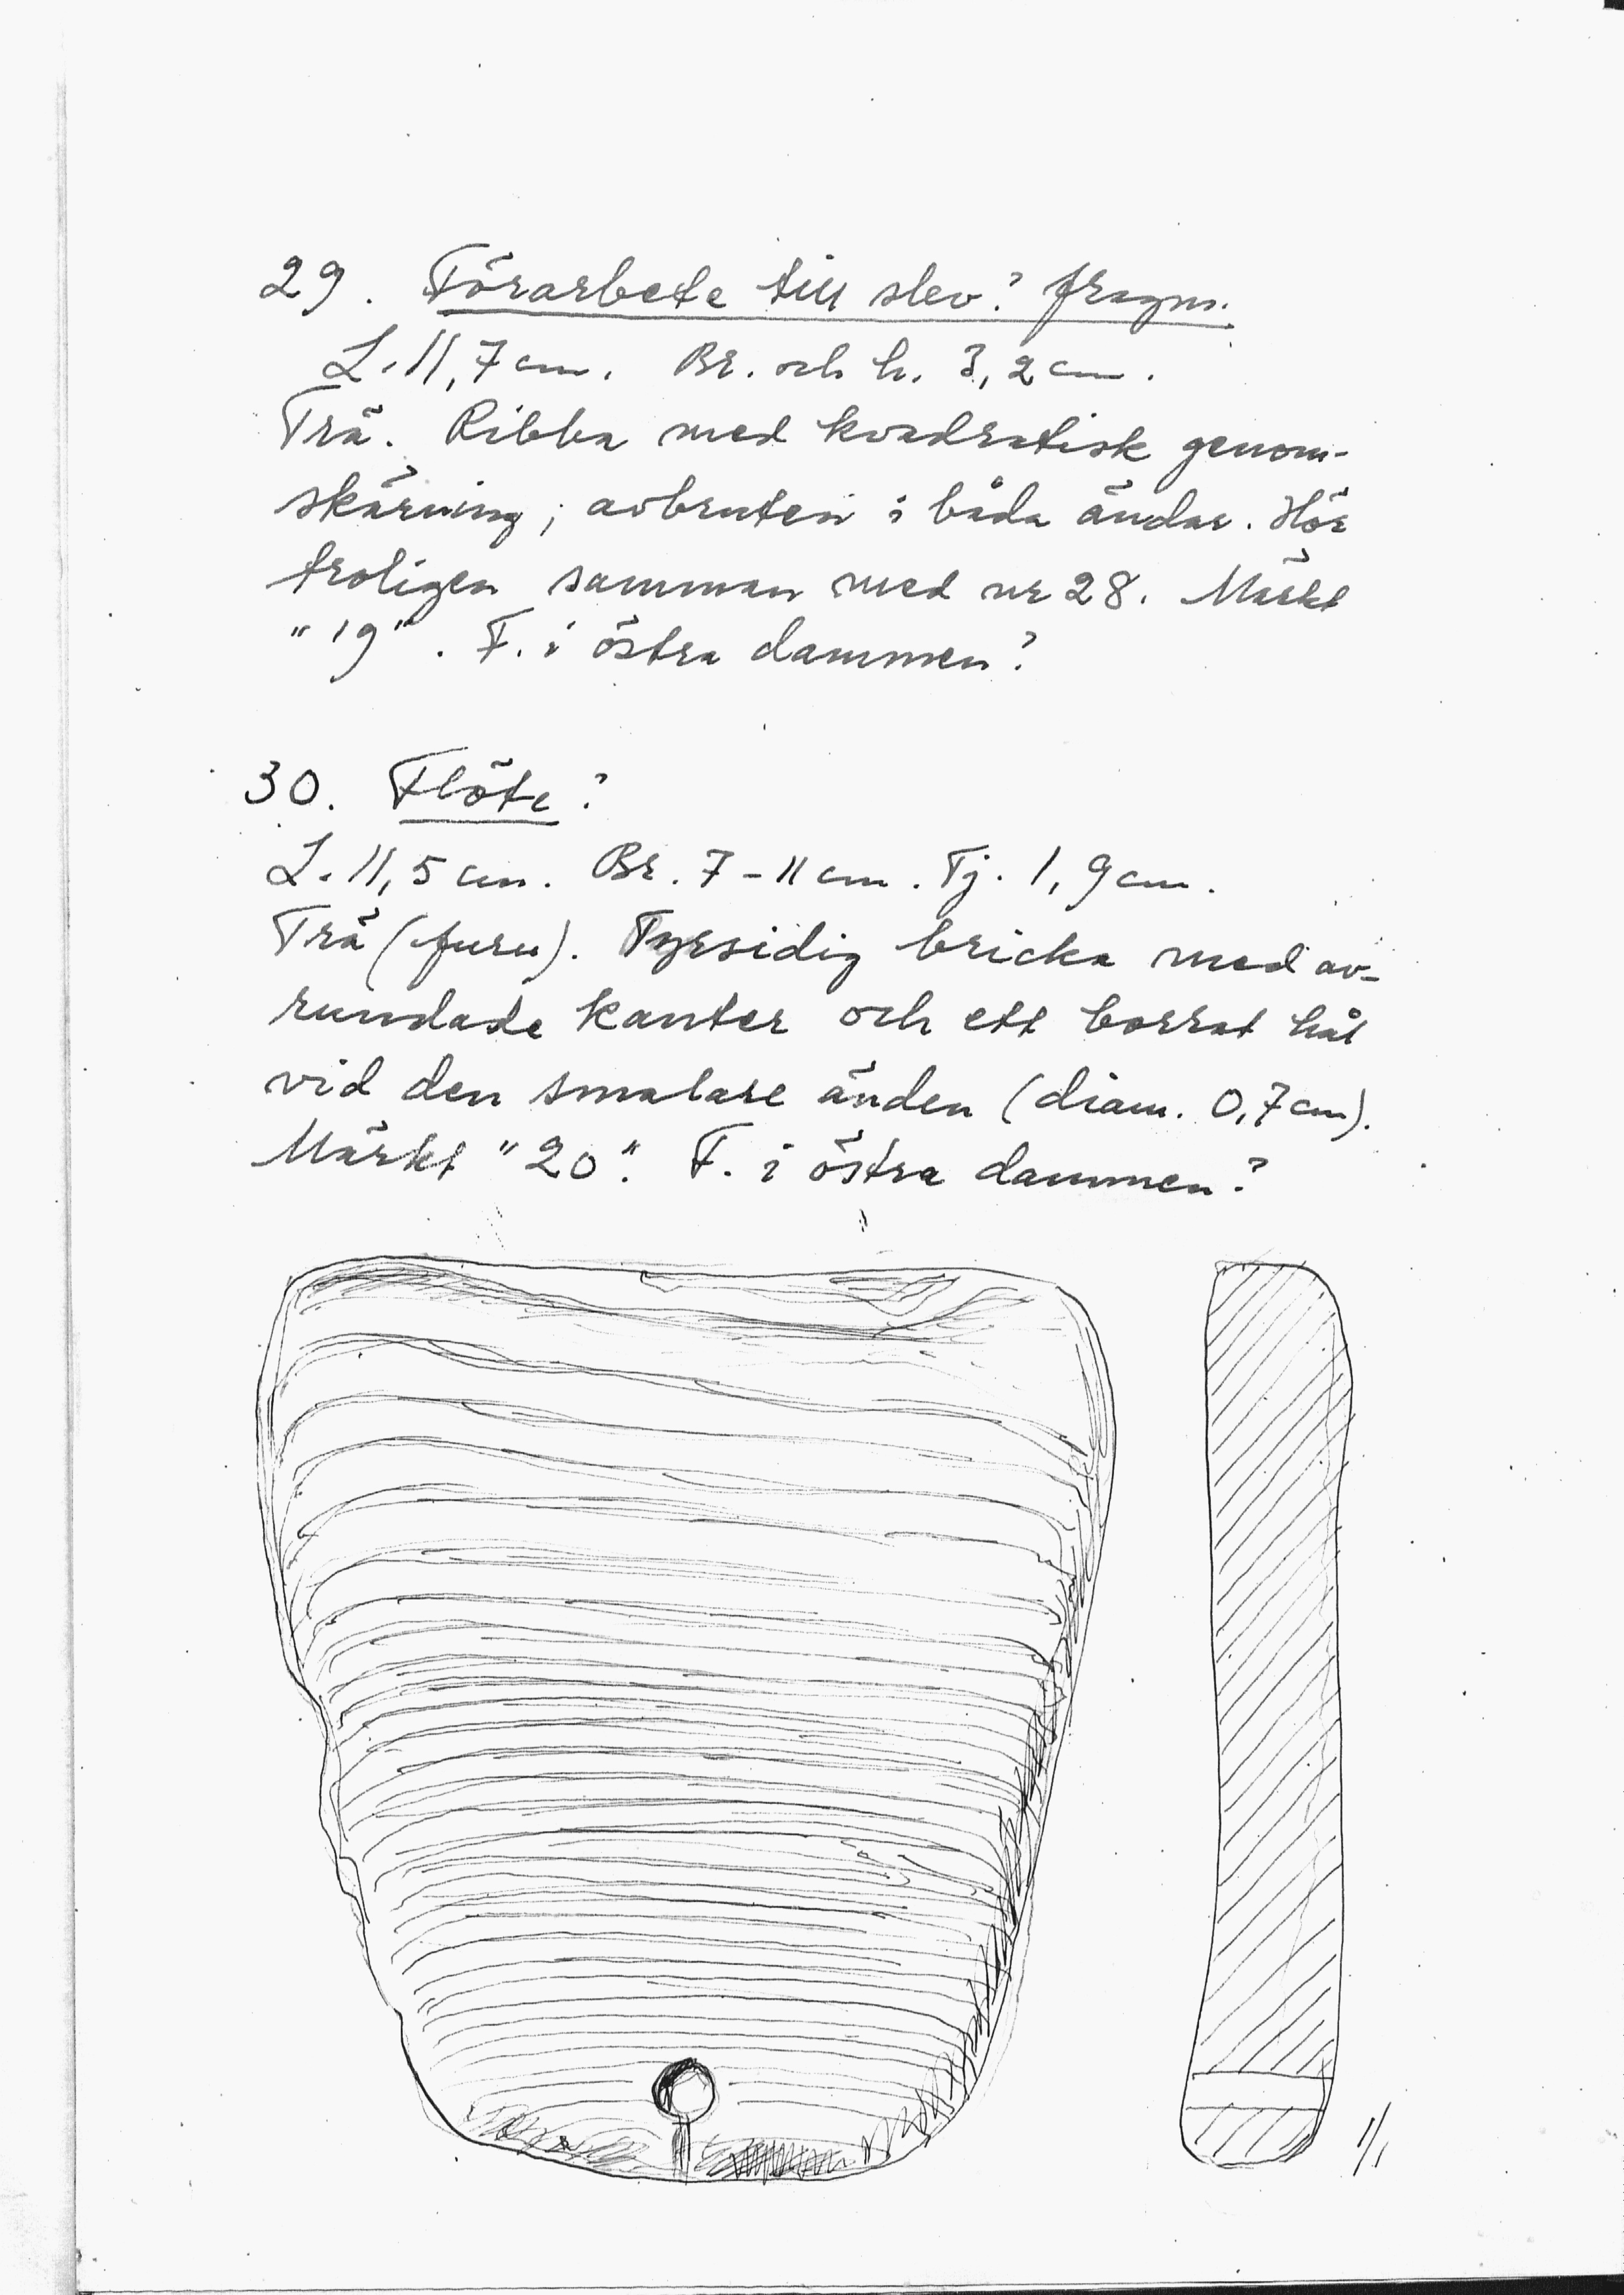 29. Förarbete till slev? fragm.
L. 11,7 cm. Br. och h. 3,2 cm.
Trä. Ribba med kvadratisk genom-
skärning, avbruten i båda ändar. Hör
troligen samman med nr 28. Märkt
"19". F. i östra dammen?
30. Flöte?
L. 11,5 cm. Br. 7-11 cm. Tj. 1,9 cm.
Trä (furu). Fyrsidig bricka med av-
rundade kanter och ett borrat hål
vid den smalare änden (diam. 0,7 cm).
Märkt "20". F. i östra dammen?
1/1